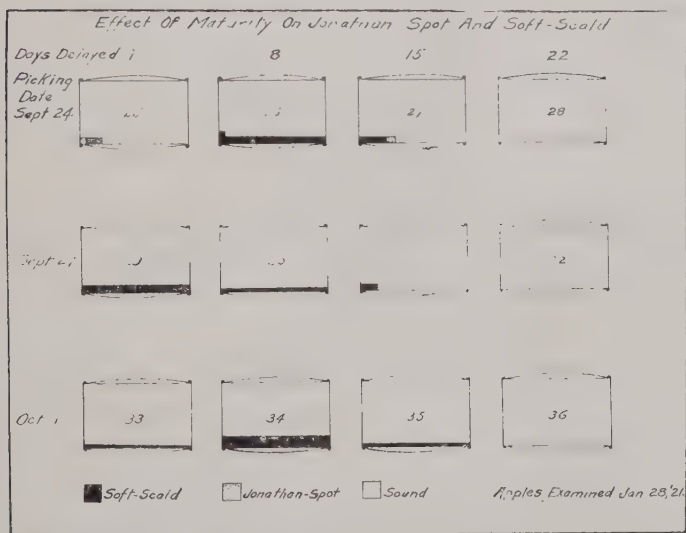 Effect Of Maturity On Jonathan Spot And Soft-Scald
Days Delayed 1 8 15 22
Picking
Date
Sept 24 28
Sept
Oct 1 33 34 35 36
Soft-Scald Jonathan-Spot Sound Apples Examined Jan 28,'21.